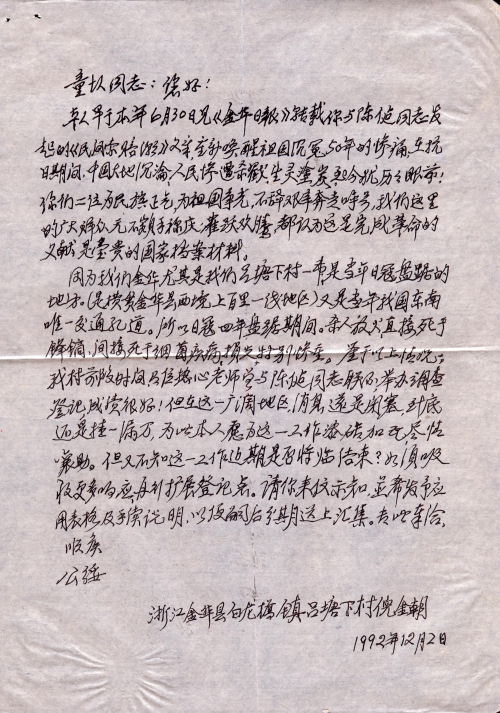 童圦同志：您好！
本人早于本年6月30日见《金华日报》转载你与陈侃同志发
起的《民间索赔》文章，室外唤醒祖国沉冤50年的惨痛，在抗
日期间，中国大地沉沦，人民惨遭杀戮，生灵涂炭，历历在目前！
你们二位为民族正气，为祖国争光，不辞艰辛奔走呼号，我们这里
的广大群众无不额手称庆，雀跃欢腾，都认为这是完成革命的
文献是宝贵的国家档案材料。
因为我们金华尤其是我们吕塘下村一带是当年日寇盘踞的
地方（是横贯金华县西境上百里一线地区）又是当年我国东南
唯一交通孔道。所以日寇四年盘踞期间。杀人放火直接死于
锋镝，间接死于细菌疾病，损失特别惨重。鉴于以上情况，
我村前段时间吕位热心老师曾与陈侃同志联系，举办调查
登记，成绩很好！但在这一广阔地区，消息还是闭塞，到底
还是挂一漏万，为此本人愿为这一工作添砖加瓦尽情
襄助。但又不知这一工作近期是否将临结束？如须吸
收更多响应再行扩展登记点。请你来信示知，并希发予应
用表格及手续说明，以便嗣后分期送上汇集。专此奉告，
顺候
公绥
浙江金华县白龙桥镇吕塘下村倪金朝
1992年12月2日